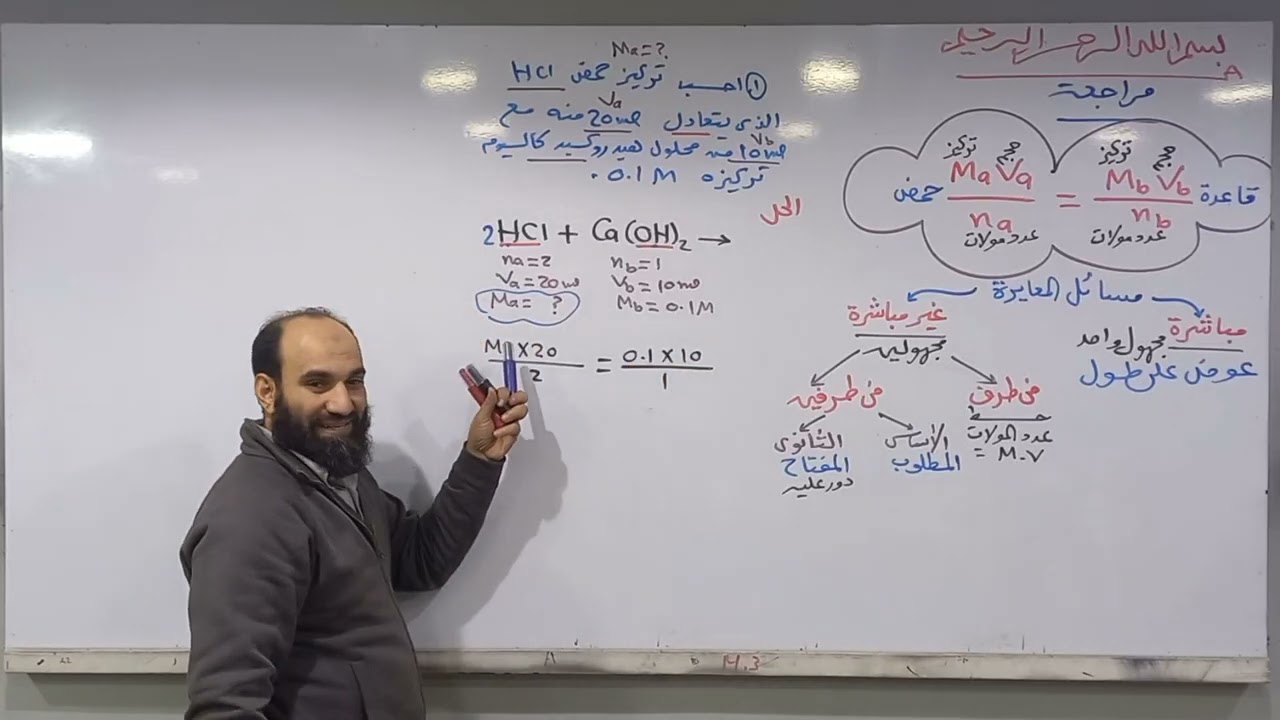 بسم الله الرحمن الرحيم
مراجعة
تركيز حجم تركيز حجم
حمض MaVa/na = MbVb/nb قاعدة
عدد مولات عدد مولات
مسائل المعايرة
مباشرة مجهول واحد
عوض على طول
غير مباشرة
مجهولين
من طرف
عدد المولات
= M.V
من طرفين
الأساسى
المطلوب
الثانوى
المفتاح
دور عليه
Ma=?
① احسب تركيز حمض HCl
Va
الذى يتعادل 20 ml منه مع
Vb
10 ml من محلول هيدروكسيد كالسيوم
تركيزه 0.1 M .
الحل
2HCl + Ca(OH)2 →
na=2 nb=1
Va=20 ml Vb=10 ml
Ma= ? Mb=0.1M
x20/2 = 0.1 x 10/1